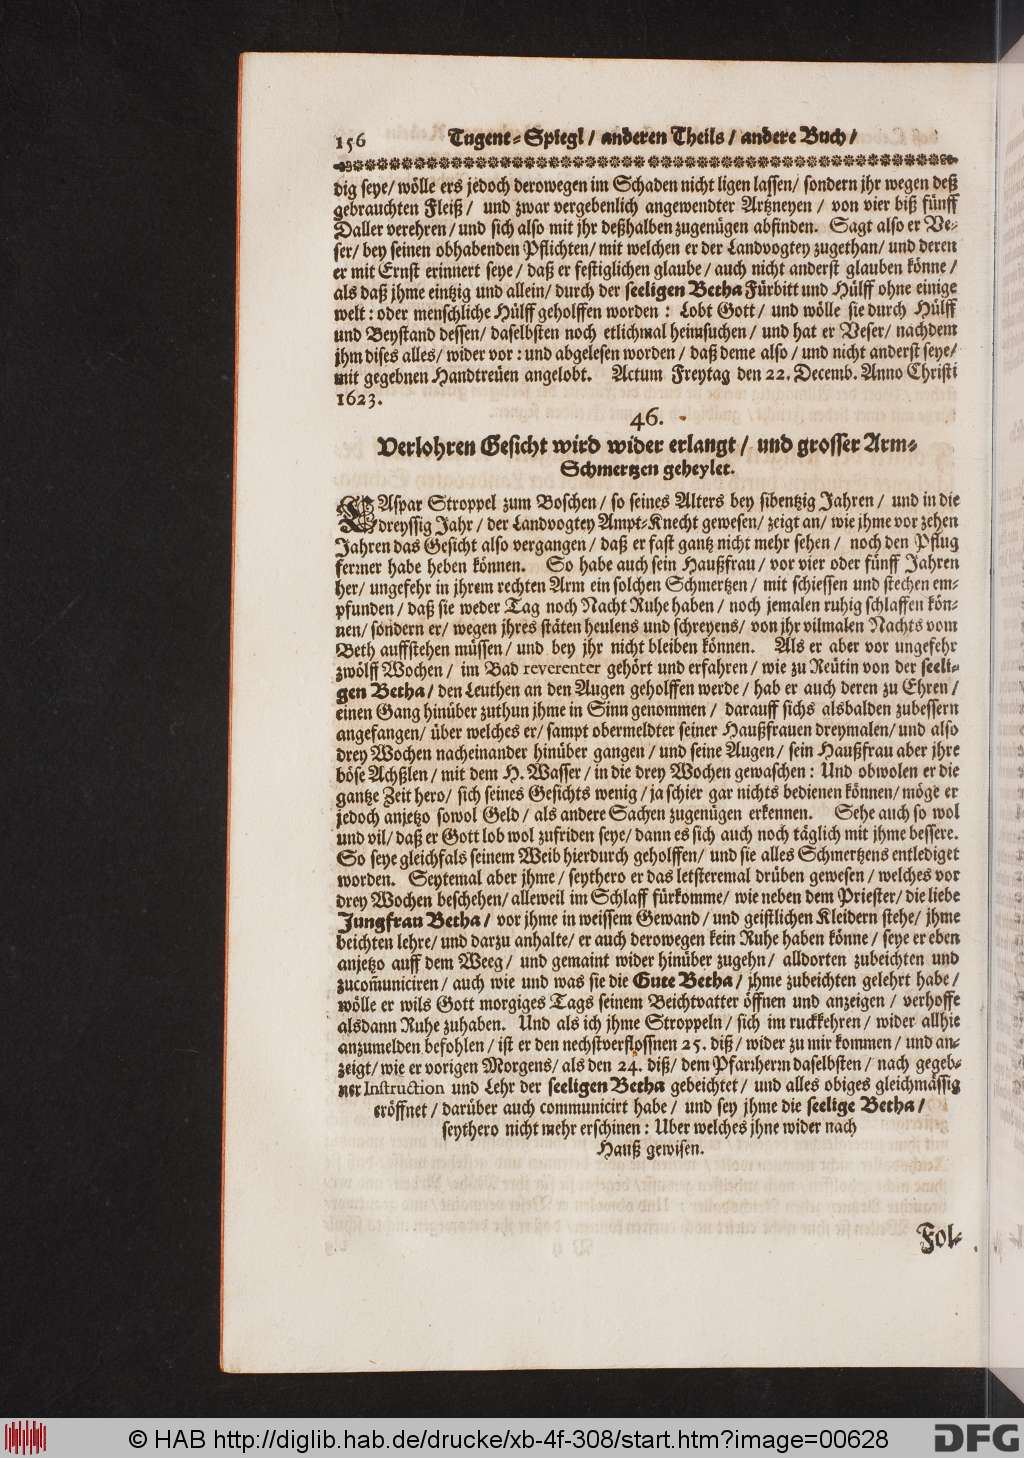 156 Tugent-Spiegl / anderen Theils / andere Buch /
dig seye / wölle ers jedoch derowegen im Schaden nicht ligen lassen / sondern jhr wegen deß
gebrauchten Fleiß / und zwar vergebenlich angewendter Artzneyen / von vier biß fünff
Daller verehren / und sich also mit jhr deßhalben zugenügen abfinden. Sagt also er Ve-
ser / bey seinen obhabenden Pflichten / mit welchen er der Landvogtey zugethan / und deren
er mit Ernst erinnert seye / daß er festiglichen glaube / auch nicht anderst glauben könne /
als daß jhme eintzig und allein / durch der seeligen Betha Fürbitt und Hülff ohne einige
welt: oder menschliche Hülff geholffen worden : Lobt Gott / und wölle sie durch Hülff
und Beystand dessen / daselbsten noch etlichmal heimsuchen / und hat er Veser / nachdem
jhm dises alles / wider vor: und abgelesen worden / daß deme also / und nicht anderst seye /
mit gegebnen Handtreüen angelobt. Actum Freytag den 22. Decemb. Anno Christi
1623.
46.
Verlohren Gesicht wird wider erlangt / und grosser Arm-
Schmertzen geheylet.
CAspar Stroppel zum Boschen / so seines Alters bey sibentzig Jahren / und in die
dreyssig Jahr / der Landvogtey Ampt-Knecht gewesen / zeigt an / wie jhme vor zehen
Jahren das Gesicht also vergangen / daß er fast gantz nicht mehr sehen / noch den Pflug
ferner habe heben können. So habe auch sein Haußfrau / vor vier oder fünff Jahren
her / ungefehr in jhrem rechten Arm ein solchen Schmertzen / mit schiessen und stechen em-
pfunden / daß sie weder Tag noch Nacht Ruhe haben / noch jemalen ruhig schlaffen kön-
nen / sondern er / wegen jhres stäten heulens und schreyens / von jhr vilmalen Nachts vom
Beth auffstehen müssen / und bey jhr nicht bleiben können. Als er aber vor ungefehr
zwölff Wochen / im Bad reverenter gehört und erfahren / wie zu Reütin von der seeli-
gen Betha / den Leuthen an den Augen geholffen werde / hab er auch deren zu Ehren /
einen Gang hinüber zuthun jhme in Sinn genommen / darauff sichs alsbalden zubessern
angefangen / über welches er / sampt obermeldter seiner Haußfrauen dreymalen / und also
drey Wochen nacheinander hinüber gangen / und seine Augen / sein Haußfrau aber jhre
böse Achßlen / mit dem H. Wasser / in die drey Wochen gewaschen : Und obwolen er die
gantze Zeit hero / sich seines Gesichts wenig / ja schier gar nichts bedienen können / möge er
jedoch anjetzo sowol Geld / als andere Sachen zugenügen erkennen. Sehe auch so wol
und vil / daß er Gott lob wol zufriden seye / dann es sich auch noch täglich mit jhme bessere.
So seye gleichfals seinem Weib hierdurch geholffen / und sie alles Schmertzens entlediget
worden. Seytemal aber jhme / seythero er das letsteremal drüben gewesen / welches vor
drey Wochen beschehen / alleweil im Schlaff fürkomme / wie neben dem Priester / die liebe
Jungfrau Betha / vor jhme in weissem Gewand / und geistlichen Kleidern stehe / jhme
beichten lehre / und darzu anhalte / er auch derowegen kein Ruhe haben könne / seye er eben
anjetzo auff dem Weeg / und gemaint wider hinüber zugehn / alldorten zubeichten und
zucom̃uniciren / auch wie und was sie die Gute Betha / jhme zubeichten gelehrt habe /
wölle er wils Gott morgiges Tags seinem Beichtvatter öffnen und anzeigen / verhoffe
alsdann Ruhe zuhaben. Und als ich jhme Stroppeln / sich im ruckkehren / wider allhie
anzumelden befohlen / ist er den nechstverflossnen 25. diß / wider zu mir kommen / und an-
zeigt / wie er vorigen Morgens / als den 24. diß / dem Pfarrherrn daselbsten / nach gegeb-
ner Instruction und Lehr der seeligen Betha gebeichtet / und alles obiges gleichmässig
eröffnet / darüber auch communicirt habe / und sey jhme die seelige Betha /
seythero nicht mehr erschinen : Uber welches jhne wider nach
Hauß gewisen.
Fol-
© HAB http://diglib.hab.de/drucke/xb-4f-308/start.htm?image=00628
DFG